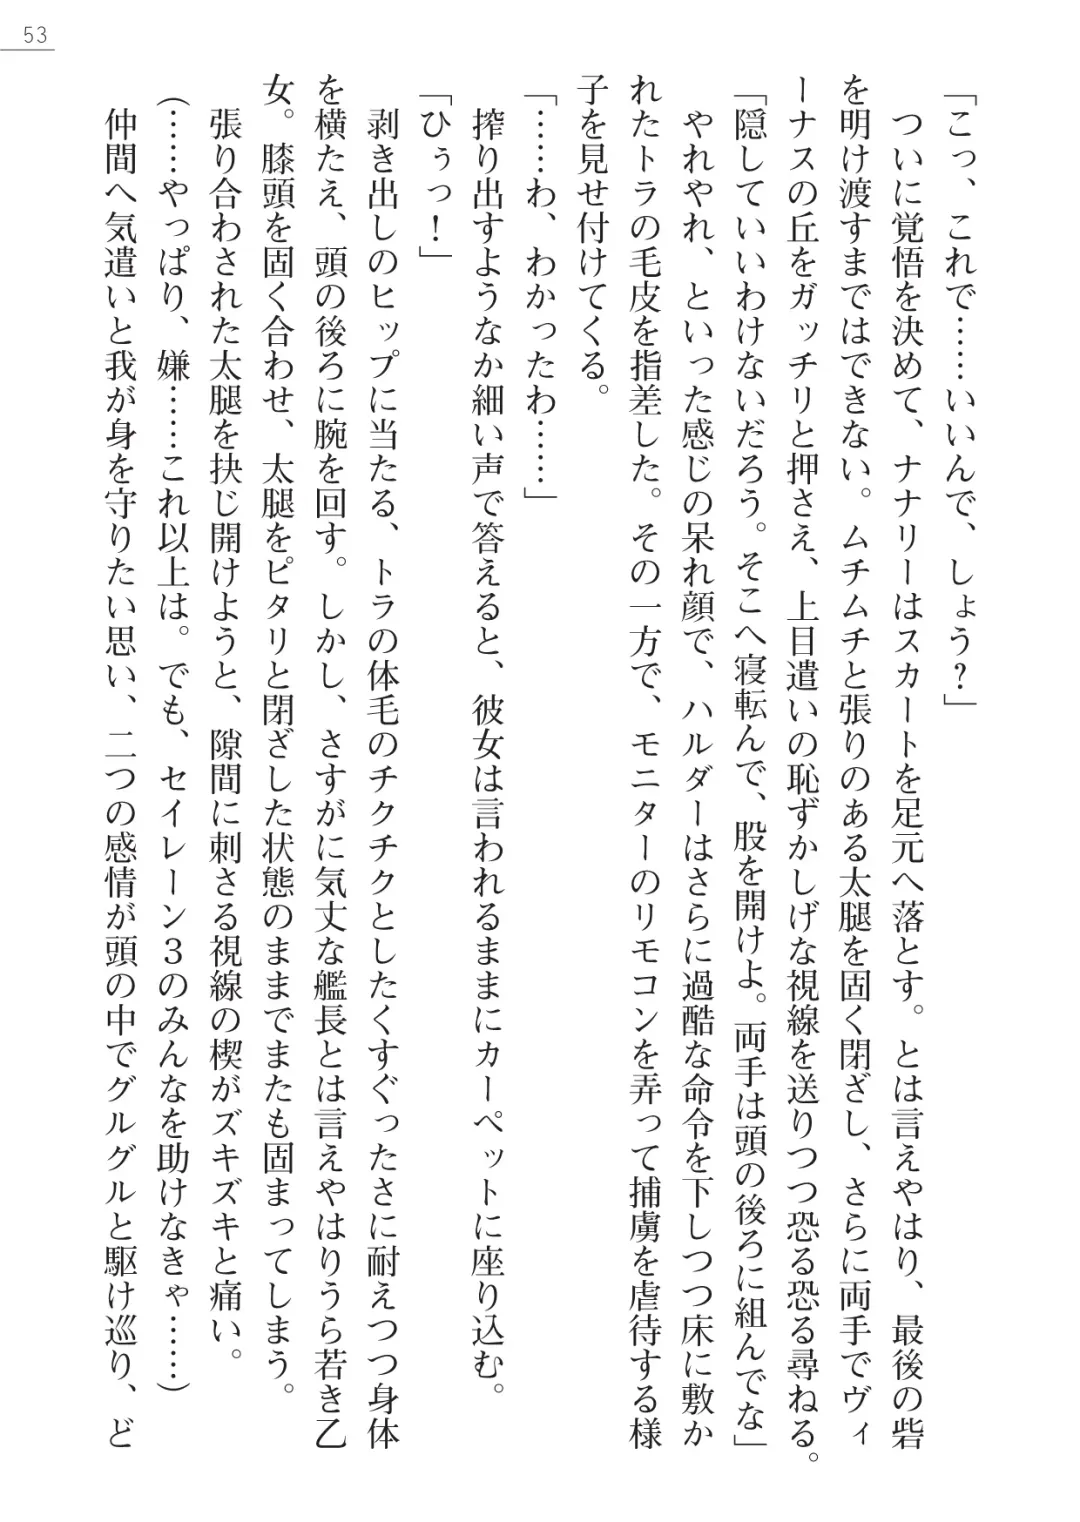 53
「こっ、これで……いいんで、しょう?」
　ついに覚悟を決めて、ナナリーはスカートを足元へ落とす。とは言えやはり、最後の砦
を明け渡すまではできない。ムチムチと張りのある太腿を固く閉ざし、さらに両手でヴィ
ーナスの丘をガッチリと押さえ、上目遣いの恥ずかしげな視線を送りつつ恐る恐る尋ねる。
「隠していいわけないだろう。そこへ寝転んで、股を開けよ。両手は頭の後ろに組んでな」
　やれやれ、といった感じの呆れ顔で、ハルダーはさらに過酷な命令を下しつつ床に敷か
れたトラの毛皮を指差した。その一方で、モニターのリモコンを弄って捕虜を虐待する様
子を見せ付けてくる。
「……わ、わかったわ……」
　搾り出すようなか細い声で答えると、彼女は言われるままにカーペットに座り込む。
「ひぅっ！」
　剥き出しのヒップに当たる、トラの体毛のチクチクとしたくすぐったさに耐えつつ身体
を横たえ、頭の後ろに腕を回す。しかし、さすがに気丈な艦長とは言えやはりうら若き乙
女。膝頭を固く合わせ、太腿をピタリと閉ざした状態のままでまたも固まってしまう。
　張り合わされた太腿を抉じ開けようと、隙間に刺さる視線の楔がズキズキと痛い。
（……やっぱり、嫌……これ以上は。でも、セイレーン３のみんなを助けなきゃ……）
　仲間へ気遣いと我が身を守りたい思い、二つの感情が頭の中でグルグルと駆け巡り、ど